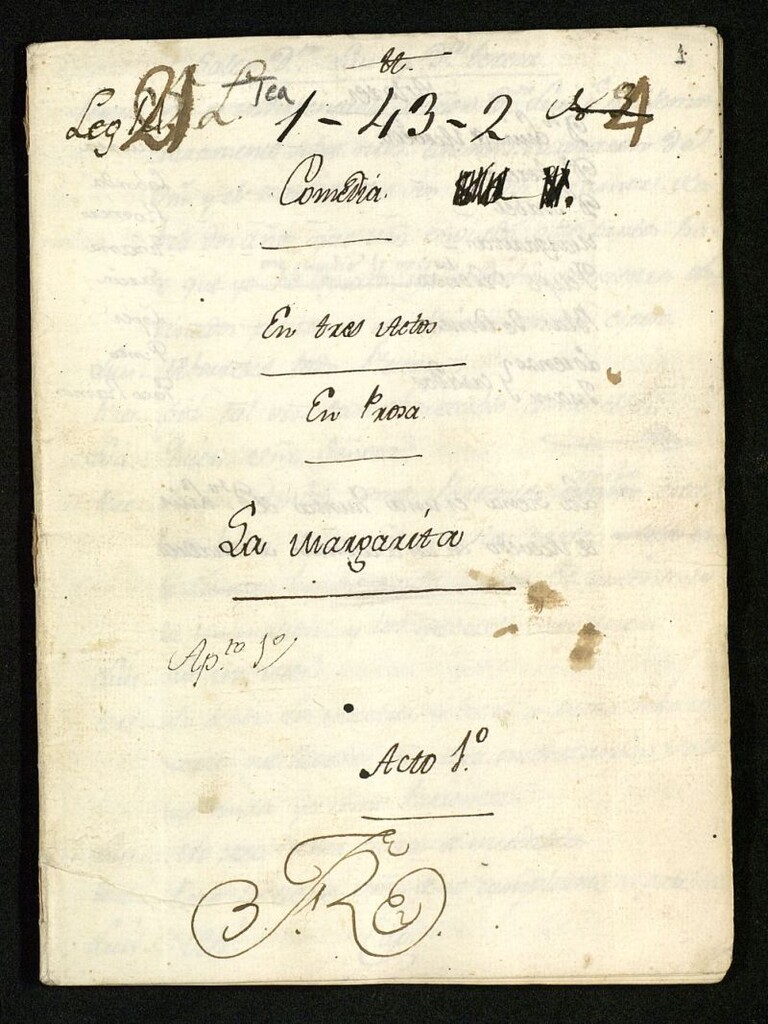 1
Leg 21 L Tea 1-43-2 4
Comedia
En tres Actos
En Prosa
La Margarita
Ap.to 1º
Acto 1º.